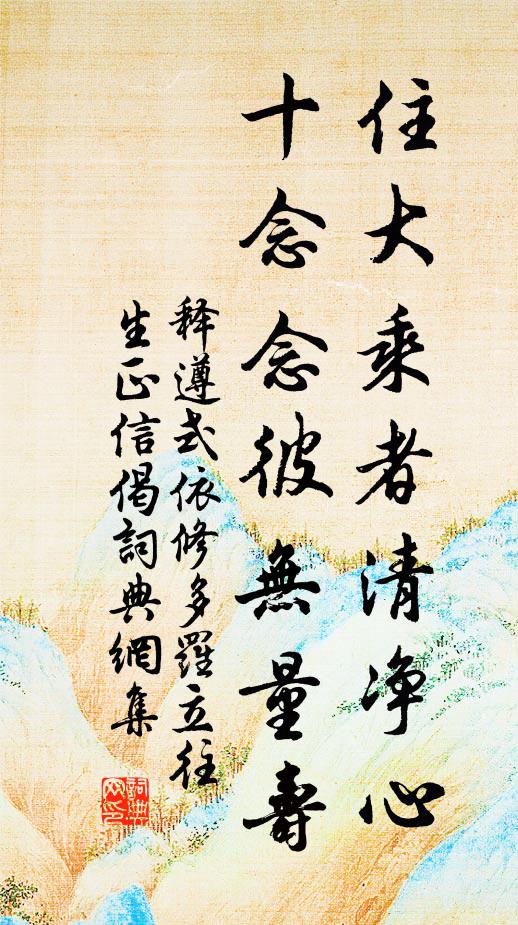 住大乘者清净心
十念念彼無量壽
释遵式依修多羅立往
生正信偈詞典網集
詞典網印